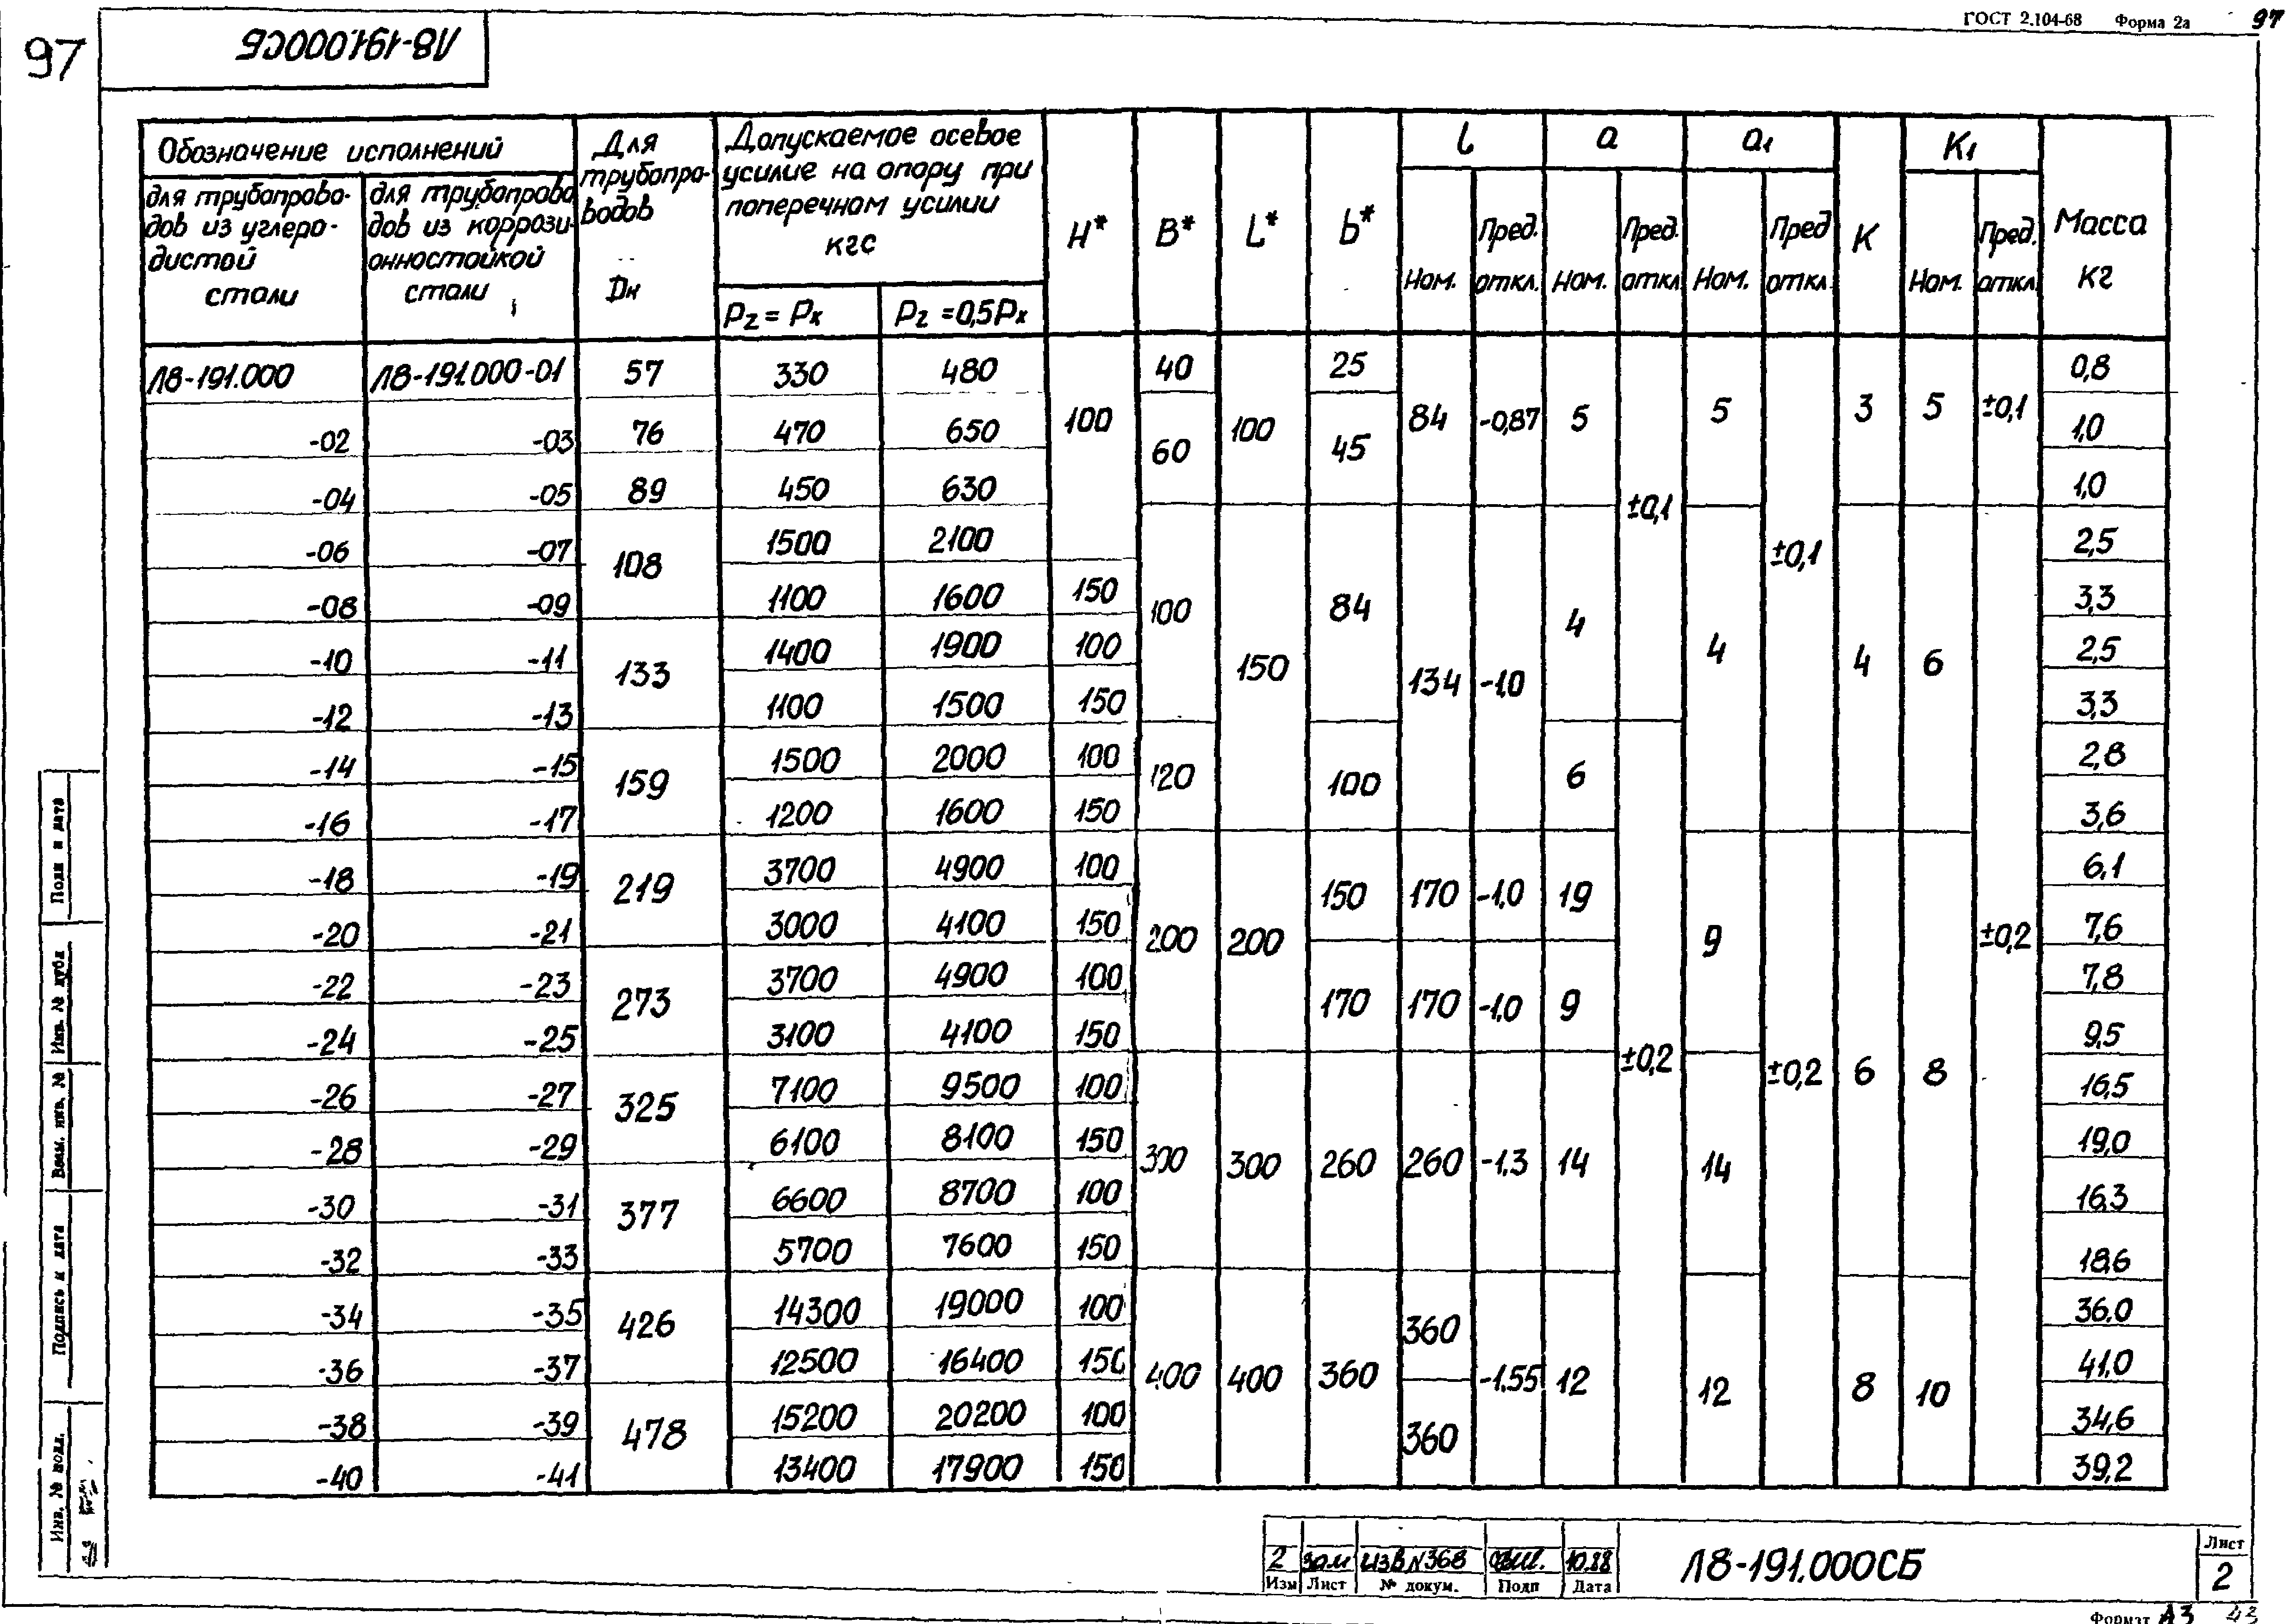 ГОСТ 2.104-68 Форма 2а 97
97
Л8-191.000СБ
Обозначение исполнений
для трубопрово-
дов из углеро-
дистой
стали
для трубопрово
дов из коррози-
онностойкой
стали
Для
трубопро-
водов
Dн
Допускаемое осевое
усилие на опору при
поперечном усилии
кгс
Pz = Px
Pz = 0,5Px
H*
B*
L*
b*
l
Ном.
Пред.
откл.
a
Ном.
Пред.
откл
a1
Ном.
Пред
откл
K
K1
Ном.
Пред.
откл.
Масса
кг
Л8-191.000 Л8-191.000-01 57 330 480 100 40 100 25 84 -0,87 5 ±0,1 5 ±0,1 3 5 ±0,1 0,8
-02 -03 76 470 650 60 45 1,0
-04 -05 89 450 630 1,0
-06 -07 108 1500 2100 100 150 84 134 -1,0 4 4 4 6 2,5
-08 -09 1100 1600 150 3,3
-10 -11 133 1400 1900 100 2,5
-12 -13 1100 1500 150 3,3
-14 -15 159 1500 2000 100 120 100 6 2,8
-16 -17 1200 1600 150 3,6
-18 -19 219 3700 4900 100 200 200 150 170 -1,0 19 ±0,2 9 ±0,2 6 8 ±0,2 6,1
-20 -21 3000 4100 150 7,6
-22 -23 273 3700 4900 100 170 170 -1,0 9 7,8
-24 -25 3100 4100 150 9,5
-26 -27 325 7100 9500 100 300 300 260 260 -1,3 14 14 16,5
-28 -29 6100 8100 150 19,0
-30 -31 377 6600 8700 100 16,3
-32 -33 5700 7600 150 18,6
-34 -35 426 14300 19000 100 400 400 360 360 -1,55 12 12 8 10 36,0
-36 -37 12500 16400 150 41,0
-38 -39 478 15200 20200 100 360 34,6
-40 -41 13400 17900 150 39,2
Подп и дата
Инв. № дубл
Взам. инв. №
Подпись и дата
Инв. № подл.
2 зам изв N368 10.88
Изм Лист № докум. Подп Дата
Л8-191.000СБ
Лист
2
Формат А3 43